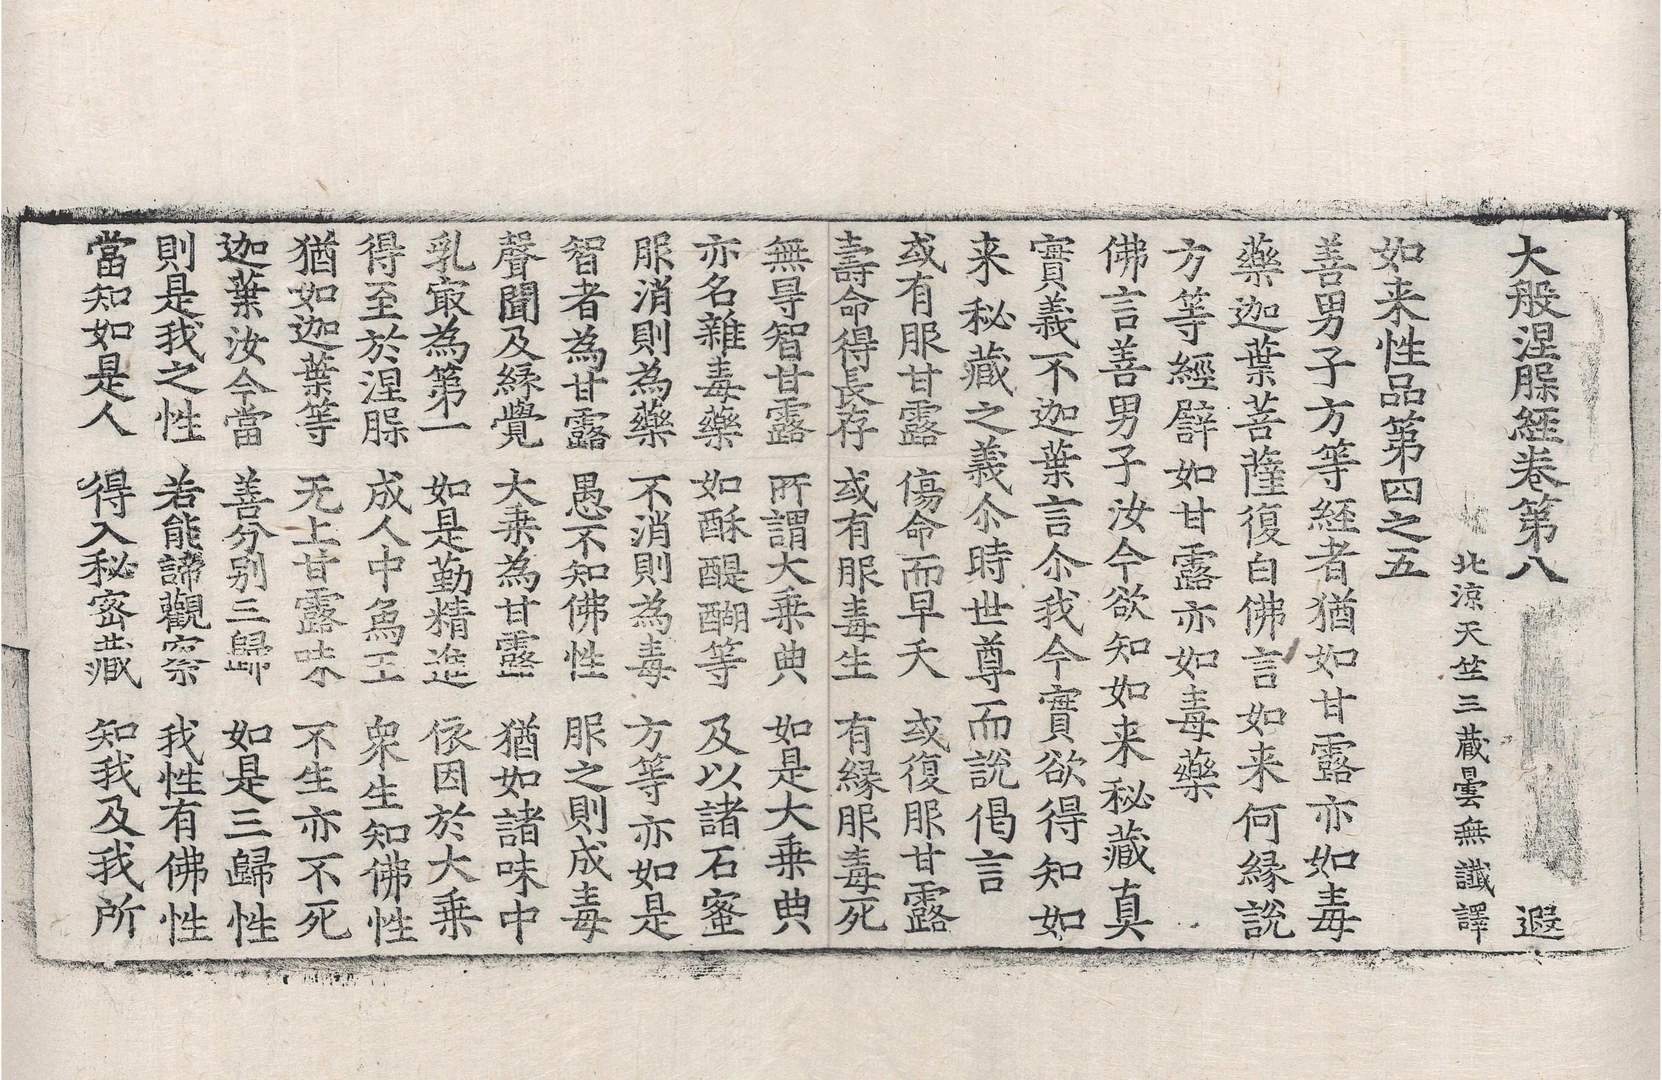 大般涅槃經卷第八 遐
北涼天竺三蔵曇無讖譯
如来性品第四之五
善男子方等經者猶如甘露亦如毒
藥迦葉菩薩復白佛言如来何縁說
方等經譬如甘露亦如毒藥
佛言善男子汝今欲知如来秘藏真
實義不迦葉言尒我今實欲得知如
来秘藏之義尒時世尊而說偈言
或有服甘露 傷命而早夭 或復服甘露
壽命得長存 或有服毒生 有縁服毒死
無㝵智甘露 所謂大乗典 如是大乗典
亦名雜毒藥 如酥醍醐等 及以諸石蜜
服消則為藥 不消則為毒 方等亦如是
智者為甘露 愚不知佛性 服之則成毒
聲聞及縁覺 大乗為甘露 猶如諸味中
乳㝡為第一 如是勤精進 依因於大乗
得至於涅槃 成人中象王 衆生知佛性
猶如迦葉等 无上甘露味 不生亦不死
迦葉汝今當 善分别三歸 如是三歸性
則是我之性 若能諦觀察 我性有佛性
當知如是人 得入秘密藏 知我及我所